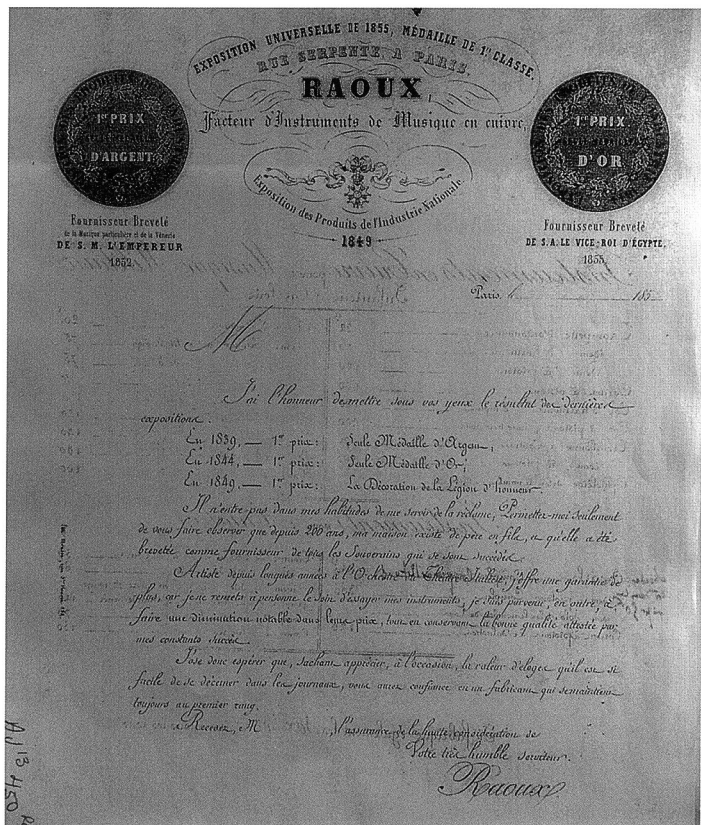 EXPOSITION UNIVERSELLE DE 1855, MÉDAILLE DE 1re CLASSE.
RUE SERPENTE, A PARIS.
RAOUX,
Facteur d'Instruments de Musique en cuivre,
Exposition des Produits de l'Industrie Nationale
1849
1er PRIX
D'ARGENT
Fournisseur Breveté
de la Musique particulière et de la Vénerie
DE S. M. L'EMPEREUR
1852.
1er PRIX
D'OR
Fournisseur Breveté
DE S. A. LE VICE-ROI D'ÉGYPTE,
1855.
Paris, le 185
M
J'ai l'honneur de mettre sous vos yeux le résultat des dernières
expositions.
En 1839, — 1er prix: Seule Médaille d'Argent;
En 1844, — 1er prix: Seule Médaille d'Or;
En 1849, — 1er prix: La Décoration de la Légion d'honneur.
Il n'entre pas dans mes habitudes de me servir de la réclame, Permettez-moi seulement
de vous faire observer que depuis 200 ans, ma maison existe de père en fils, et qu'elle a été
brevetée comme fournisseur de tous les Souverains qui se sont succédés.
Artiste depuis longues années à l'Orchestre du Théâtre Italien, j'offre une garantie de
plus, car je ne remets à personne le soin d'essayer mes instruments, je suis parvenu, en outre, à
faire une diminution notable dans leurs prix, tout en conservant la bonne qualité attestée par
mes constants succès.
J'ose donc espérer que, sachant apprécier, à l'occasion, la valeur d'éloges qu'il est si
facile de se décerner dans les journaux, vous aurez confiance en un fabricant qui se maintient
toujours au premier rang.
Recevez, M , l'assurance de la haute considération de
Votre très humble serviteur.
Raoux
AJ 13 450